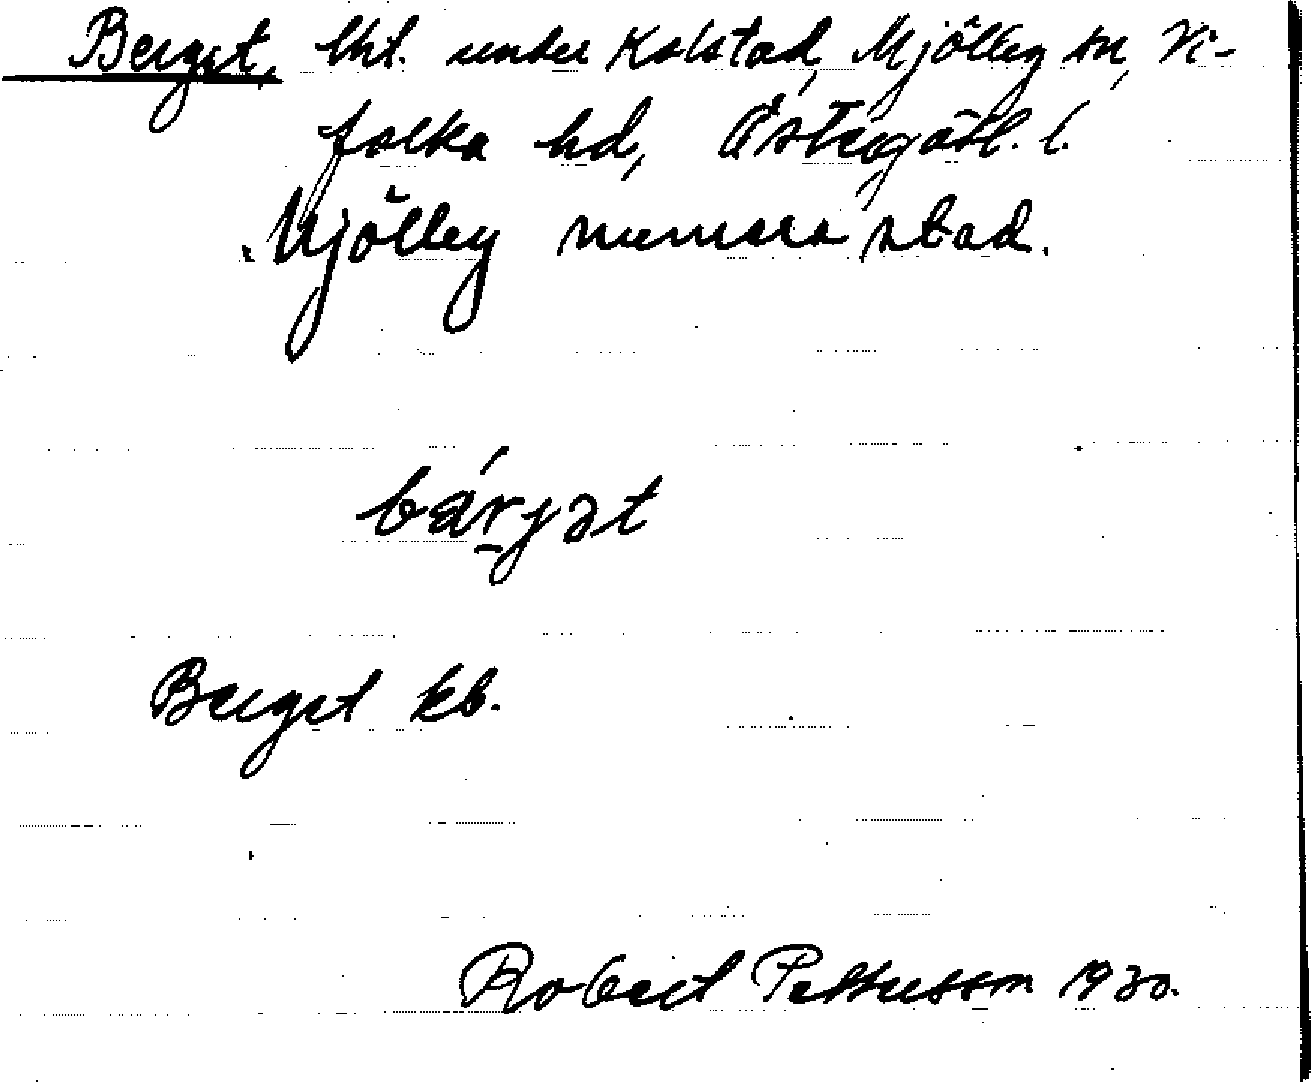 Berget, lht. under Kolstad, Mjölby sn, Vi-
folka hd, Östergötl. l.
Mjölby numera stad.
bárjət
Berget kb.
Robert Pettersson 1930.